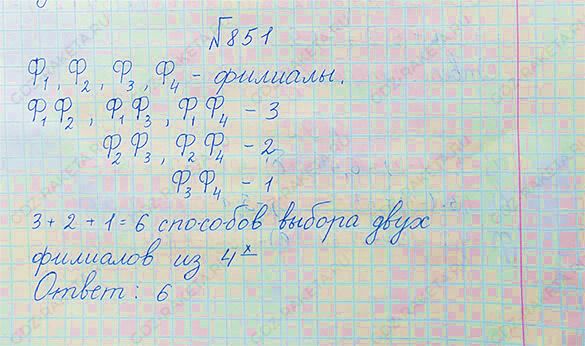 №851
Ф₁, Ф₂, Ф₃, Ф₄ – филиалы.
Ф₁Ф₂, Ф₁Ф₃, Ф₁Ф₄ – 3
Ф₂Ф₃, Ф₂Ф₄ – 2
Ф₃Ф₄ – 1
3 + 2 + 1 = 6 способов выбора двух
филиалов из 4ˣ
Ответ: 6